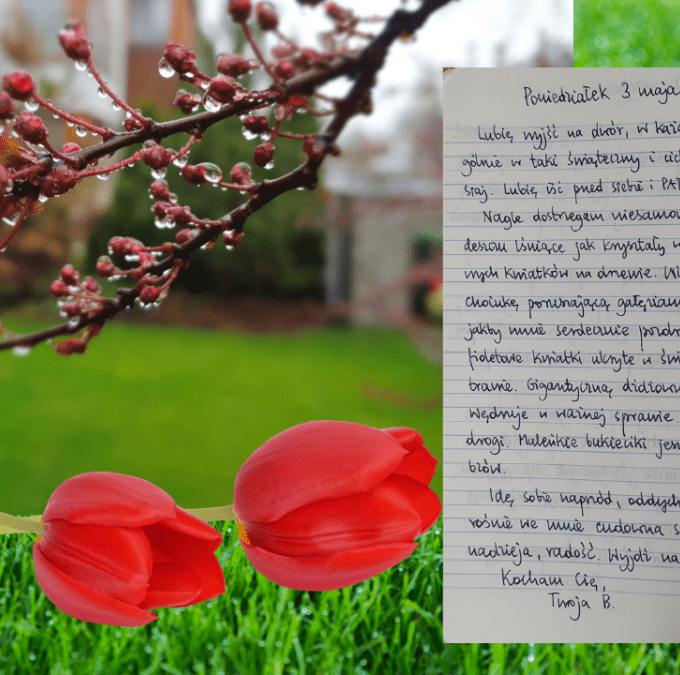 Poniedziałek 3 maja
Lubię wyjść na dwór, w każ
gólnie w taki świąteczny i cich
siaj. Lubię iść przed siebie i PAT
Nagle dostrzegam niesamow
deszczu lśniące jak kryształy w
nych kwiatków na drzewie. Wi
choinkę, poruszającą gałęziam
jakby mnie serdecznie pozdr
fioletowe kwiatki ukryte w świ
trawie. Gigantyczną dżdżow
wędruje w ważnej sprawie
drogi. Maleńkie bukieciki jes
bzów.
Idę sobie naprzód, oddych
rośnie we mnie cudowna s
nadzieja, radość. Wyjdź na
Kocham Cię,
Twoja B.